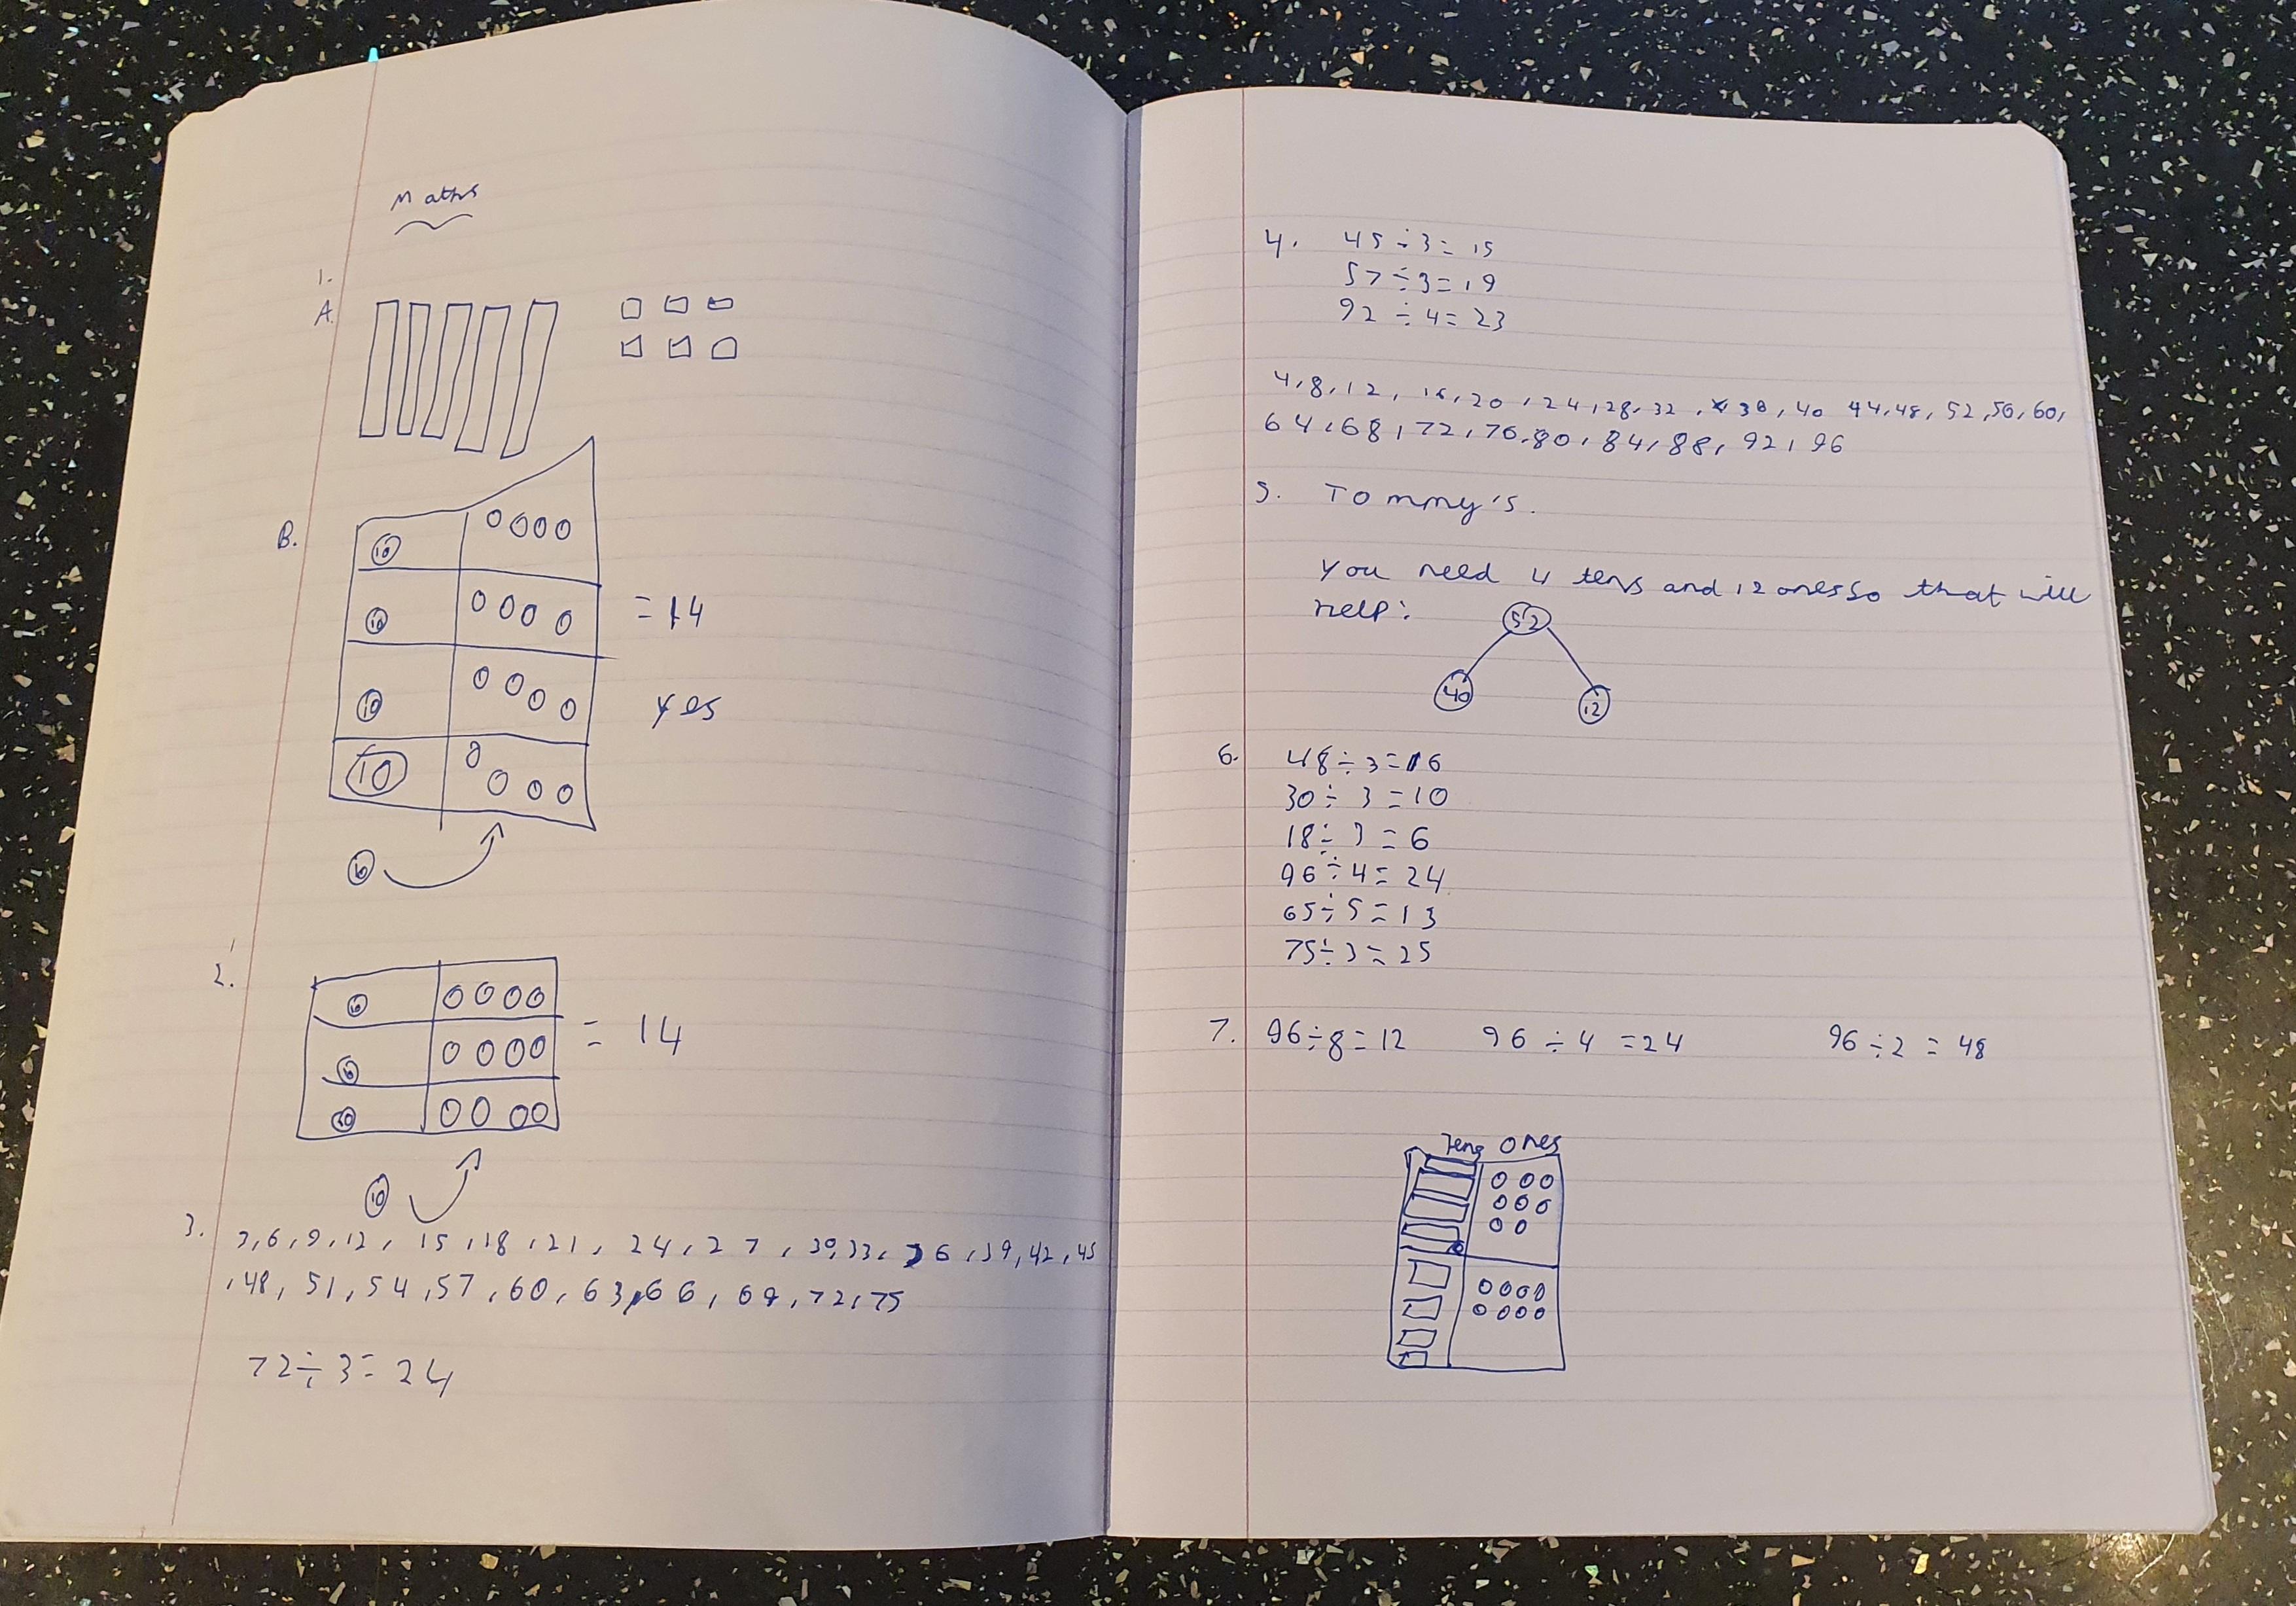 Maths
1.
A.
B.
10
10
= 14
10
yes
10
10
2.
10
10
= 14
10
10
3. 3, 6, 9, 12, 15, 18, 21, 24, 27, 30, 33, 36, 39, 42, 45
, 48, 51, 54, 57, 60, 63, 66, 69, 72, 75
72 ÷ 3 = 24
4. 45 ÷ 3 = 15
57 ÷ 3 = 19
92 ÷ 4 = 23
4, 8, 12, 16, 20, 24, 28, 32, 36, 40 44, 48, 52, 56, 60,
64, 68, 72, 76, 80, 84, 88, 92, 96
5. Tommy's.
You need 4 tens and 12 ones so that will
help:
52
40
12
6. 48 ÷ 3 = 16
30 ÷ 3 = 10
18 ÷ 3 = 6
96 ÷ 4 = 24
65 ÷ 5 = 13
75 ÷ 3 = 25
7. 96 ÷ 8 = 12 96 ÷ 4 = 24 96 ÷ 2 = 48
Tens Ones